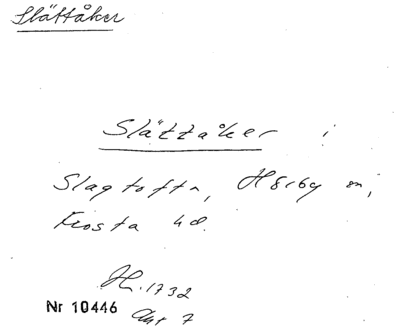 Slättåker
Slättåker i
Slagtofta, Hörby sn,
Frosta hd.
H. 1732
Nr 10446
Akt 7